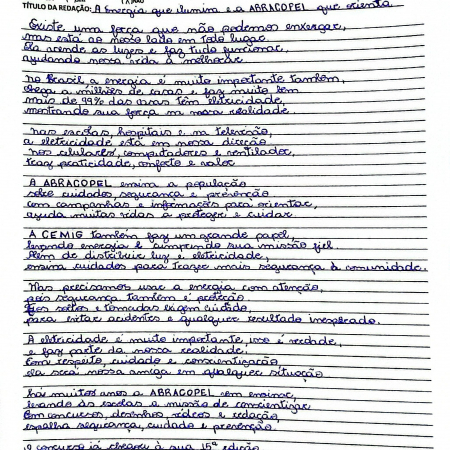 TÍTULO DA REDAÇÃO: A Energia que ilumina e a ABRACOPEL que orienta
Existe uma força que não podemos enxergar,
mas está ao nosso lado em todo lugar.
Ela acende as luzes e faz tudo funcionar,
ajudando nossa vida a melhorar.
No Brasil, a energia é muito importante também,
chega a milhões de casas e faz muito bem
mais de 99% das casas têm eletricidade,
mostrando sua força na nossa realidade.
Nas escolas, hospitais e na televisão,
a eletricidade está em nossa direção
nos celulares, computadores e ventilador,
traz praticidade, conforto e valor
A ABRACOPEL ensina a população
sobre cuidados, segurança e prevenção
com campanhas e informações para orientar,
ajuda muitas vidas a proteger e cuidar.
A CEMIG também faz um grande papel,
levando energia e cumprindo sua missão fiel.
Além de distribuir luz e eletricidade,
ensina cuidados para trazer mais segurança à comunidade.
Mas precisamos usar a energia com atenção,
pois segurança também é proteção.
Fios soltos e tomadas exigem cuidado,
para evitar acidentes e qualquer resultado inesperado.
A eletricidade é muito importante, isso é verdade,
e faz parte da nossa realidade.
Com respeito, cuidado e conscientização,
ela será nossa amiga em qualquer situação
há muitos anos a ABRACOPEL vem ensinar,
levando às escolas a missão de conscientizar
Em concursos, desenhos, vídeos e redação,
espalha segurança, cuidado e prevenção.
o concurso já chegou à sua 15ª edição